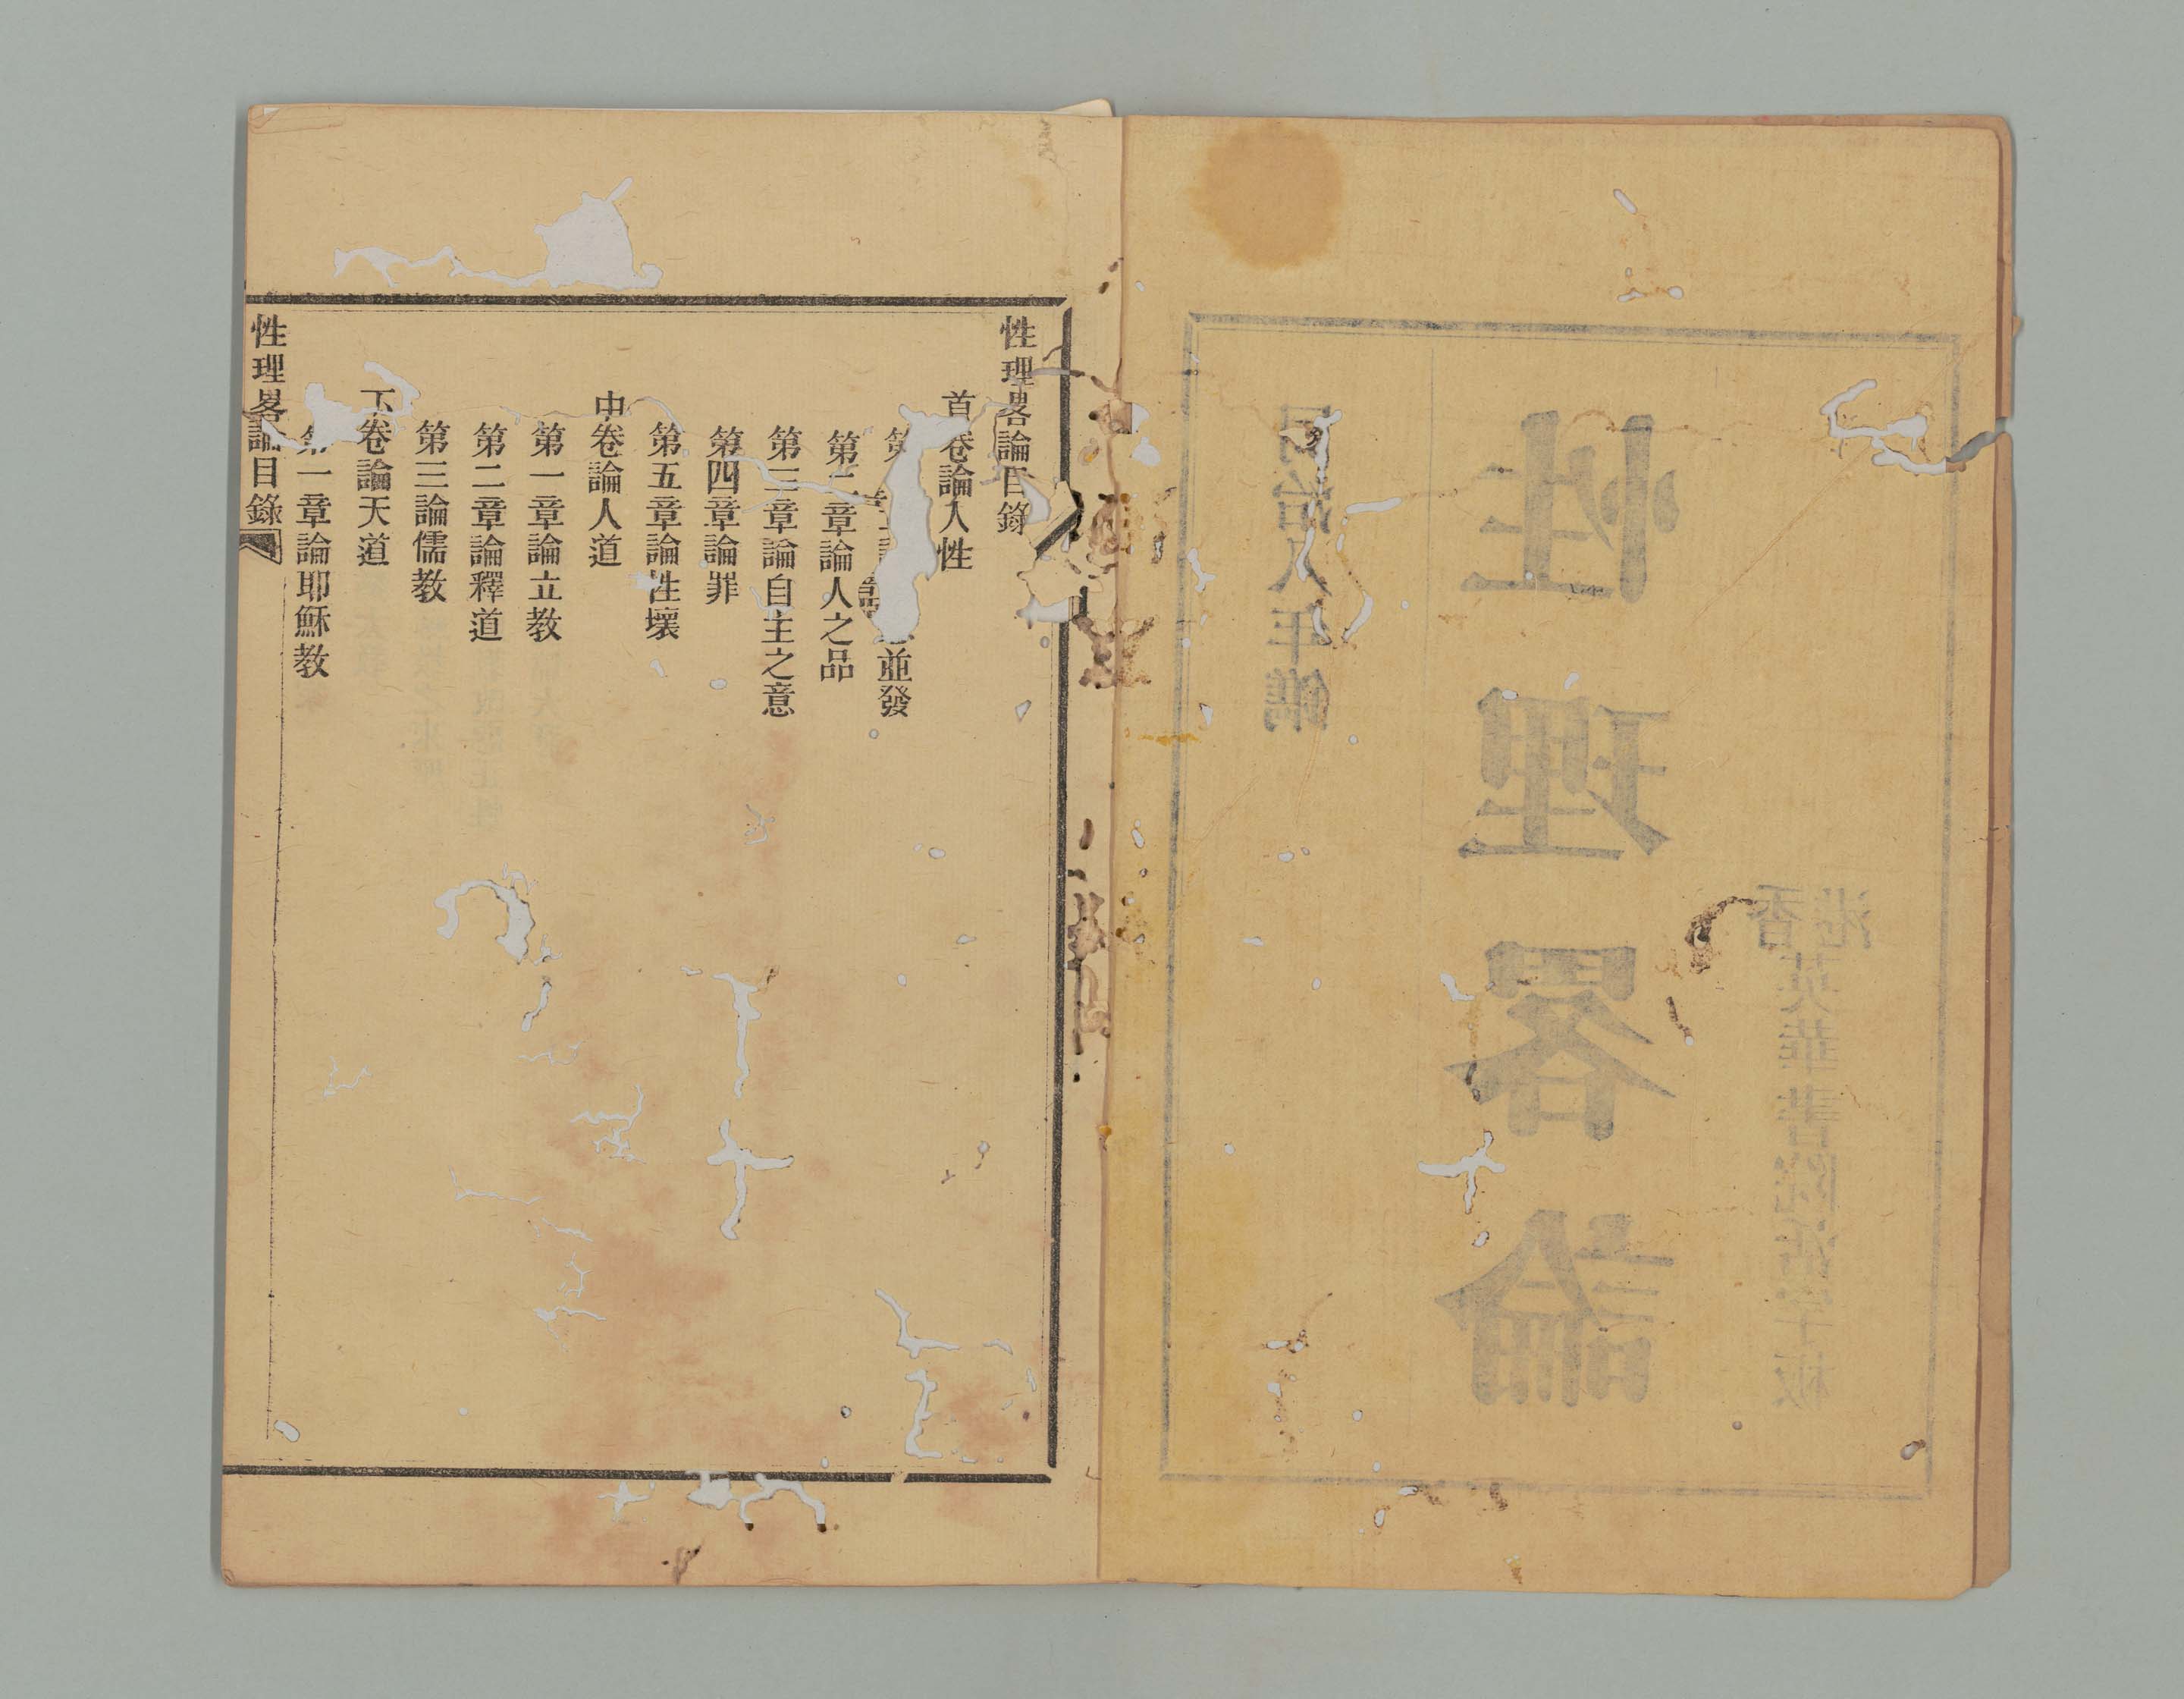 香港英華書院活字板
性理畧論
同治八年鐫
性理畧論目錄
首卷論人性
第 章 並發
第二章論人之品
第三章論自主之意
第四章論罪
第五章論性壞
中卷論人道
第一章論立教
第二章論釋道
第三論儒教
下卷論天道
第一章論耶穌教
性理畧論目錄